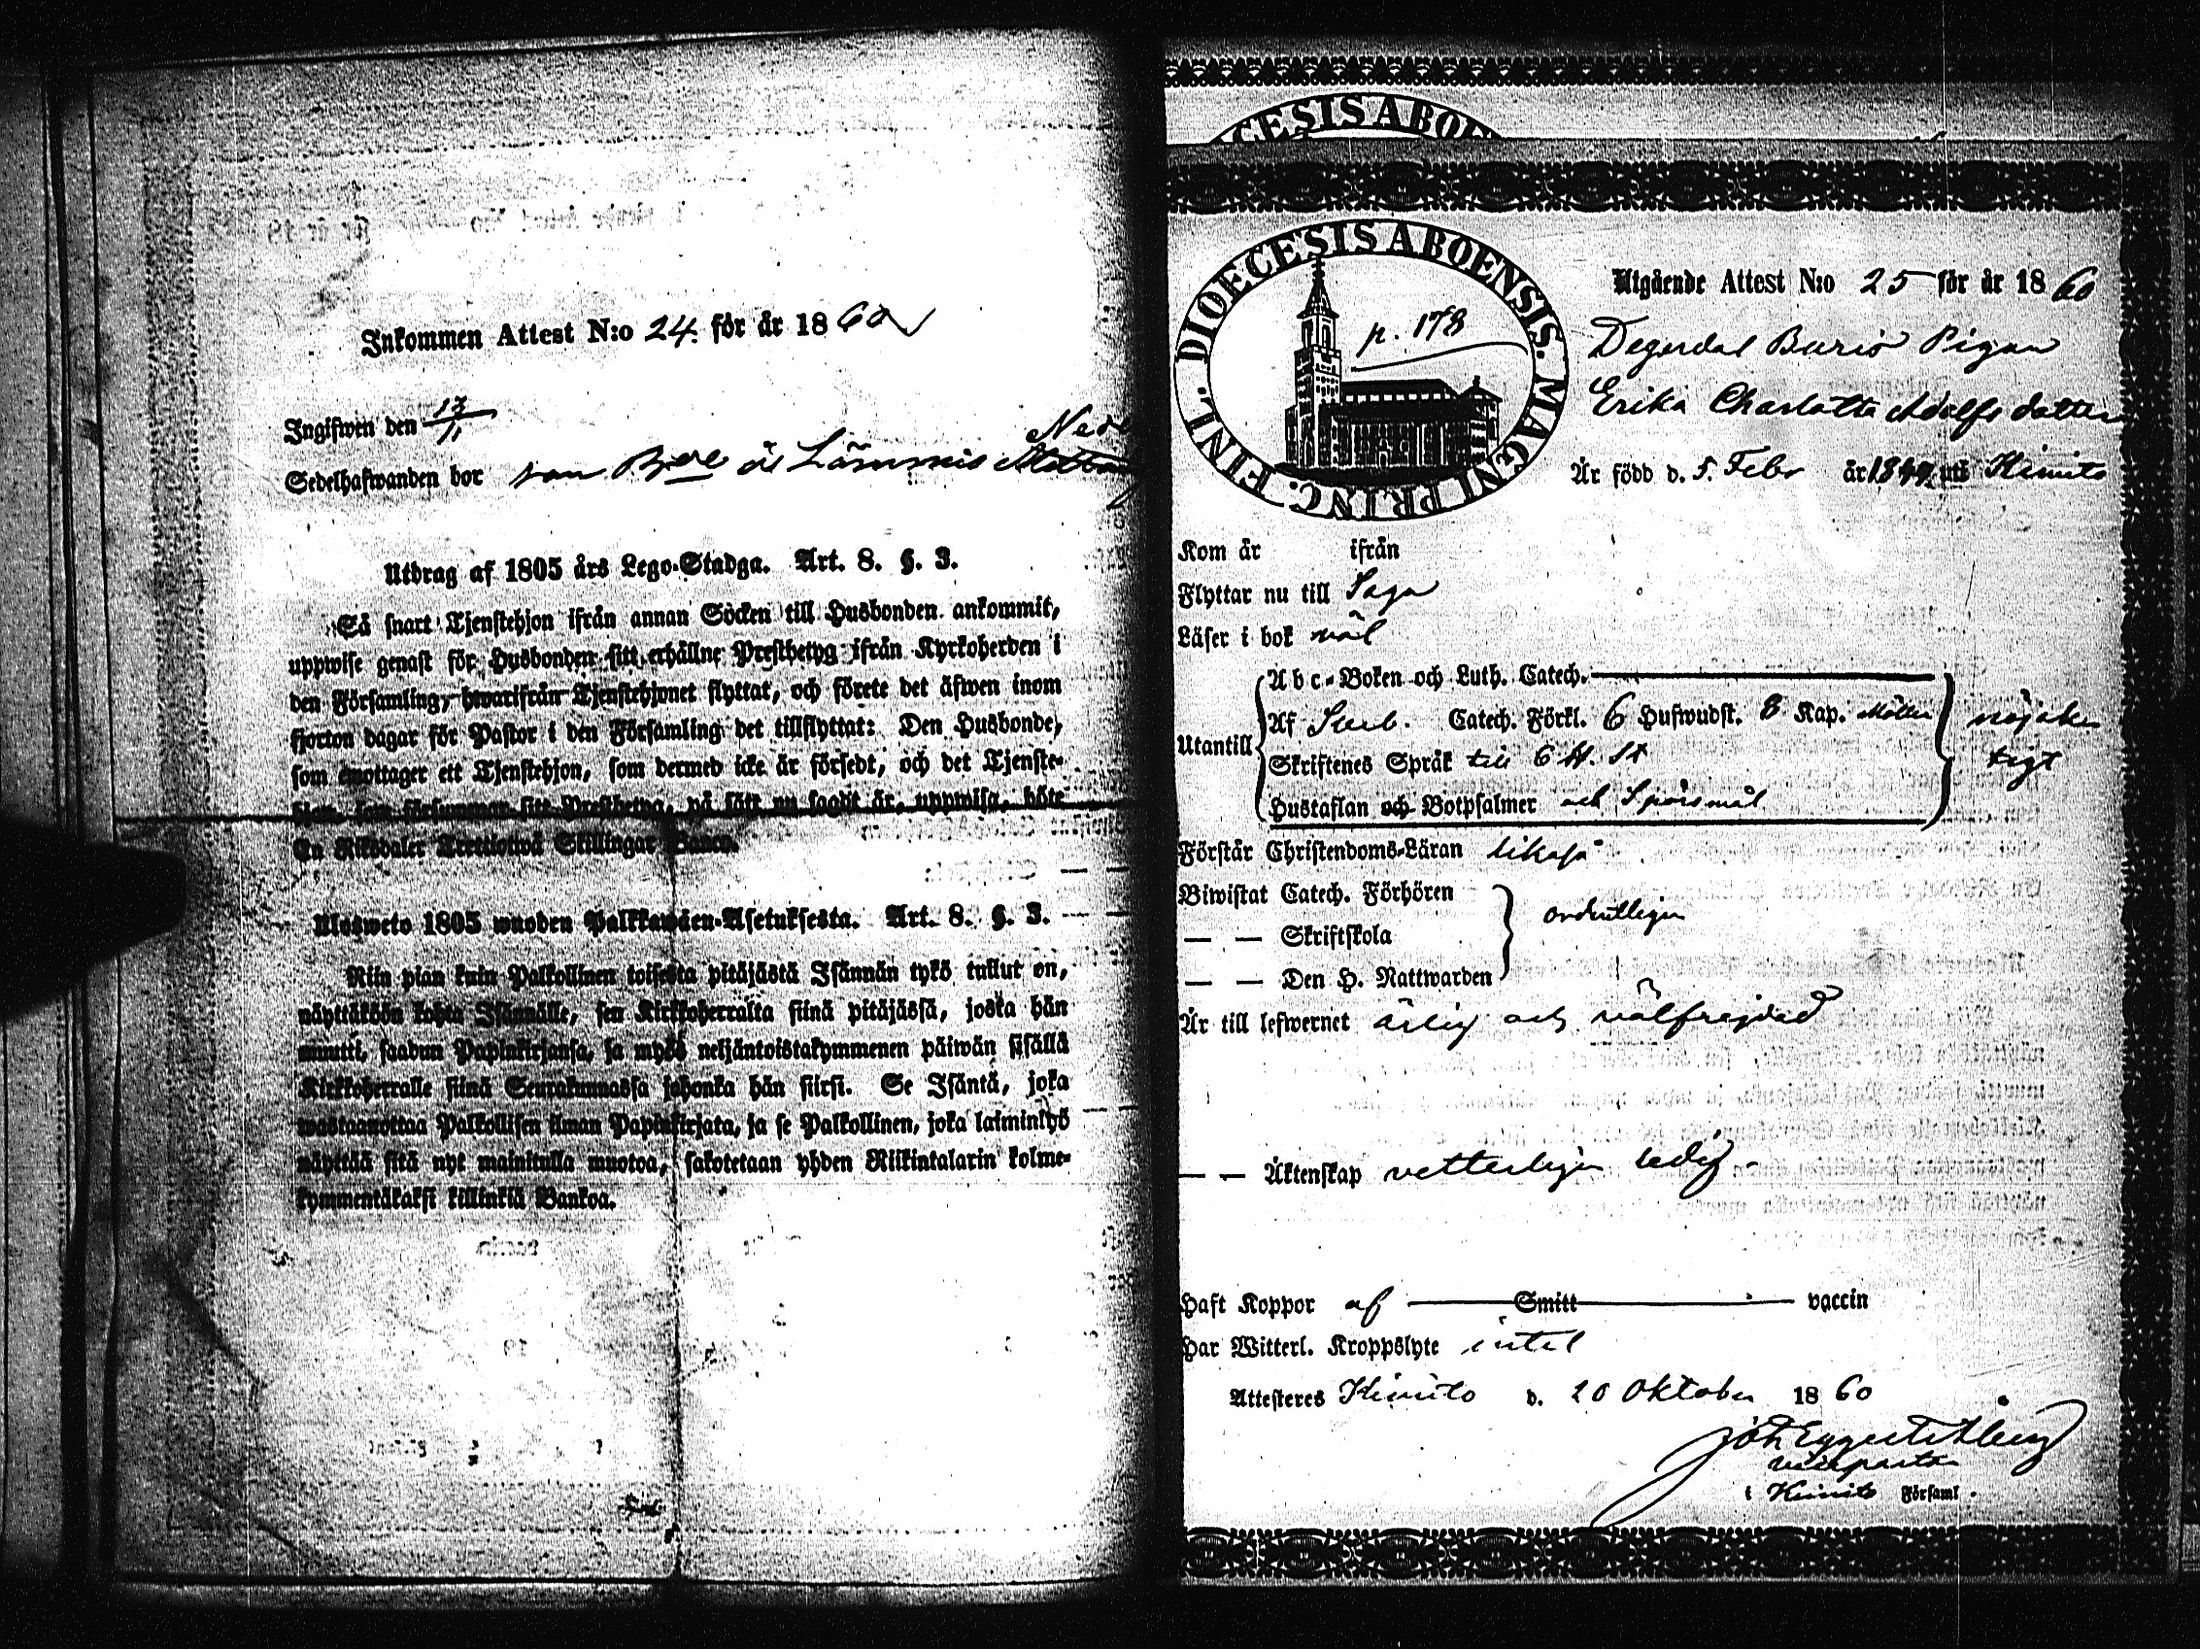 Inkommen Attest N:o 24. för år 1860
Ingifwen den 13/11
Sedelhafwanden bor som på Lämmis
Utdrag af 1805 års Lego-Stadga. Art. 8. §. 3.
Så snart Tjenstehjon ifrån annan Socken till Husbonden ankommit,
uppwise genast för Husbonden sitt erhållne Prestbetyg ifrån Kyrkoherden i
den Församling, hwarifrån Tjenstehjonet flyttat, och förete det äfwen inom
fjorton dagar för Pastor i den Församling det tillflyttat: Den Husbonde,
som emottager ett Tjenstehjon, som dermed icke är försedt, och det Tjenste-
hjon, som försummar sitt Prestbetyg, på sätt nu sagdt är, uppwisa, böte
En Riksdaler Trettiotwå Skillingar Banco.
Ulosweto 1805 wuoden Palkkawäen-Asetuksesta. Art. 8. §. 3.
Niin pian kuin Palkollinen toisesta pitäjästä Isännän tykö tullut on,
näyttäköön kohta Isännälle, sen Kirkkoherralta siinä pitäjässä, josta hän
muutti, saadun Papinkirjansa, ja myös neljäntoistakymmenen päiwän sisällä
Kirkkoherralle siinä Seurakunnassa johonka hän siirsi. Se Isäntä, joka
wastaanottaa Palkollisen ilman Papinkirjata, ja se Palkollinen, joka laiminlyö
näyttää sitä nyt mainitulla muotoa, sakotetaan yhden Riikintalarin kolme-
kymmentäkaksi killinkiä Bankoa.
CESIS ABOEN
DIOECESIS ABOENSIS. MAGNI PRINC. FINL.
p. 178
Utgående Attest N:o 25 för år 1860
Degerdal Buris Pigan
Erika Charlotta Adolfsdotter
Är född d. 5. Febr år 1844 uti Kimito
Kom år ifrån
Flyttar nu till Sagu
Läser i bok väl
Abc-Boken och Luth. Catech.
Af Sveb. Catech. Förkl. 6 Hufwudst. 8 Kap. Möller
Utantill
Skriftenes Språk till 6 H. St
Hustaflan och Botpsalmer och Spörsmål
nöjaktigt
Förstår Christendoms-Läran likaså
Biwistat Catech. Förhören
— — Skriftskola
— — Den H. Nattwarden
ordentligen
Är till lefwernet ärlig och välfrejdad
— — Äktenskap vetterligen ledig.
Haft Koppor af Smitt vaccin
Har Witterl. Kroppslyte intet
Attesteres Kimito d. 20 Oktober 1860
i Kimito Församl.